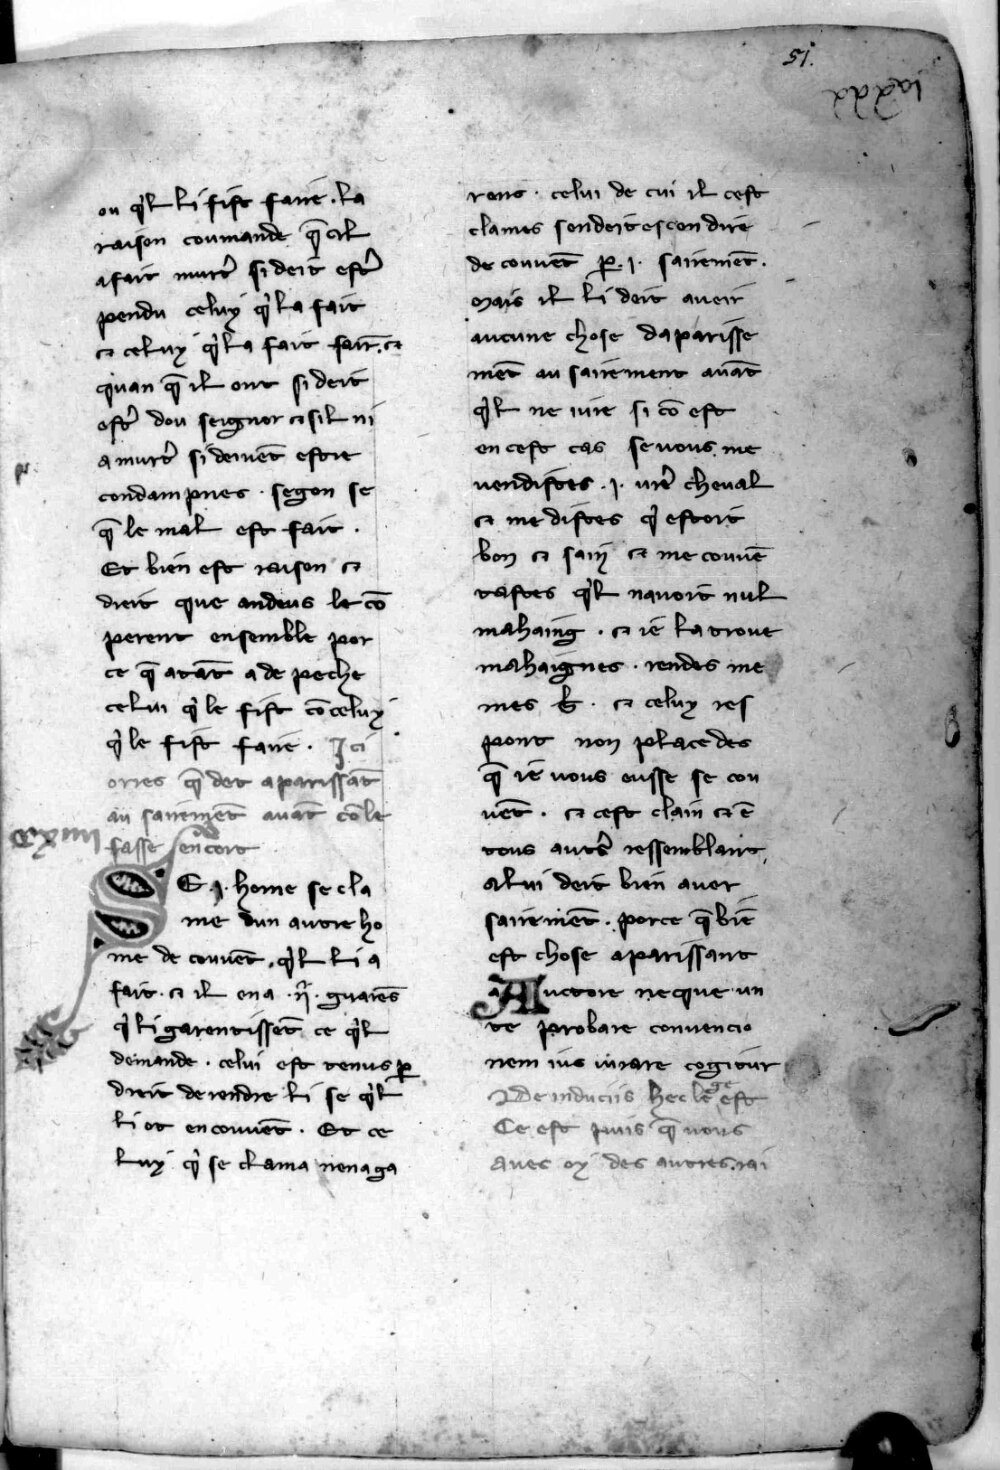 51.
ou q̓l li fist faire . la
raison coumande q̄ cil
a fait murt̓ si deit est̓
pendu celuy q̓ la fait
⁊ celuy q̓ la fait fair̄ . ⁊
quan q̄ il ont si deit
est̓ dou seignor ⁊ sil ni
a murt̓ si deiuēt estre
condampnes . segon se
q̄ le mal est fait .
Et bien est raison ⁊
dreit que andeus le cō
perent ensemble por
ce q̄ atāt a de peche
celui q̓ le fist cō celuy
q̓ le fist faire . Ici
orres q̄ det aparissāt
au sairemēt auāt cō le
fasse en cort
SE .i. home se cla
me dun autre ho
me de couuēt . q̓l li a
fait . ⁊ il en a .ii. guarēs
q̓ li garentissēt ce q̓l
demande . celui est tenus ꝑ
dreit de rendre li se q̓l
li ot en couuēt . Et ce
luy q̓ se clama nen a ga
rens . celui de cui il cest
clames sen deit escondire
de couuēt ꝑ .i. sairemēt .
Mais il li deit aueir
aucune chose daparisse
mēt au sairement auāt
q̓l ne iure si cō est
en cest cas se vous me
vendistes .i. vr̄e cheual
⁊ me distes q̓ estoit
bon ⁊ sain ⁊ me couuē
tastes q̓l nauoit nul
mahaing . ⁊ ie la troue
mahaignes . rendes me
mes ƀ . ⁊ celuy res
pont non place des
q̄ ie vous eusse se cou
uēt . ⁊ cest clain ⁊ ē
tous aut̓s ressemblant
a lui deit bien auer
sairemēt . por ce q̄ biē
est chose aparissant
Auctore neque un
te probare conuencio
nem ius iurare cogitur
De induciis hec lege est
Ce est puis q̄ vous
aues oy des autres . rai